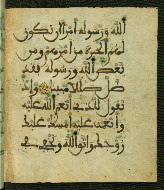 الله ورسوله أمرا أن تكون
لهم الخيرة من أمرهم ومن
يعص الله ورسوله فقد
ضل ضللا مبينا وإذ
تقول للذي أنعم الله عليه
وأنعمت عليه أمسك عليك
زوجك واتق الله وتخفي في